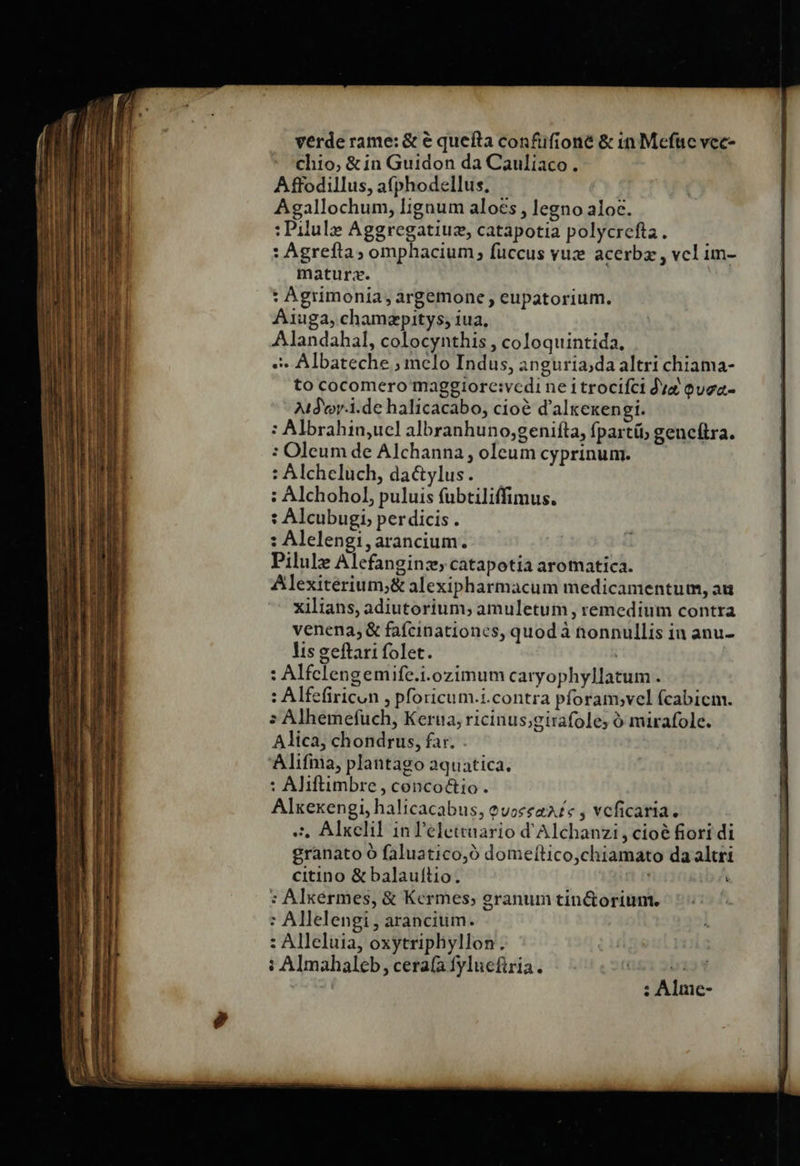 verde rame: & è questa confusione & in Mesue vec-
chio, & in Guidon da Cauliaco.
Affodillus, asphodellus.
Agallochum, lignum aloës, legno aloë.
:Pilulæ Aggregatiuæ, catapotia polycresta.
:Agresta, omphacium, succus vuæ acerbæ, vel im-
maturæ.
:Agrimonia, argemone, eupatorium.
Aiuga, chamæpitys, iua.
Alandahal, colocynthis, coloquintida.
.:. Albateche, melo Indus, anguria, da altri chiama-
to cocomero maggiore: vedi ne i trocisci διὰ φυσα-
λίδων .i. de halicacabo, cioè d'alkekengi.
:Albrahin, uel albranhuno, genista, spartũ, genestra.
:Oleum de Alchanna, oleum cyprinum.
:Alcheluch, dactylus.
:Alchohol, puluis subtilissimus.
:Alcubugi, perdicis.
:Alelengi, arancium.
Pilulæ Alefanginæ, catapotia aromatica.
Alexiterium, & alexipharmacum medicamentum, au
xilians, adiutorium, amuletum, remedium contra
venena, & fascinationes, quod à nonnullis in anu-
lis gestari solet.
:Alfelengemisc .i. ozimum caryophyllatum.
:Alfesiricon, psoricum .i. contra psoram, vel scabiem.
:Alhemesuch, Kerua, ricinus, girasole, ò mirasole.
Alica, chondrus, far.
Alisma, plantago aquatica.
:Alistimbre, concoctio.
Alkekengi, halicacabus, φυσσαλίς, vesicaria.
.:. Alkelil in l'elettuario d'Alchanzi, cioè fiori di
granato ò saluatico, ò domestico, chiamato da altri
citino & balaustio.
:Alkermes, & Kermes, granum tinctorium.
:Allelengi, arancium.
:Alleluia, oxytriphyllon.
:Almahaleb, cerasa syluestria.
:Alme-